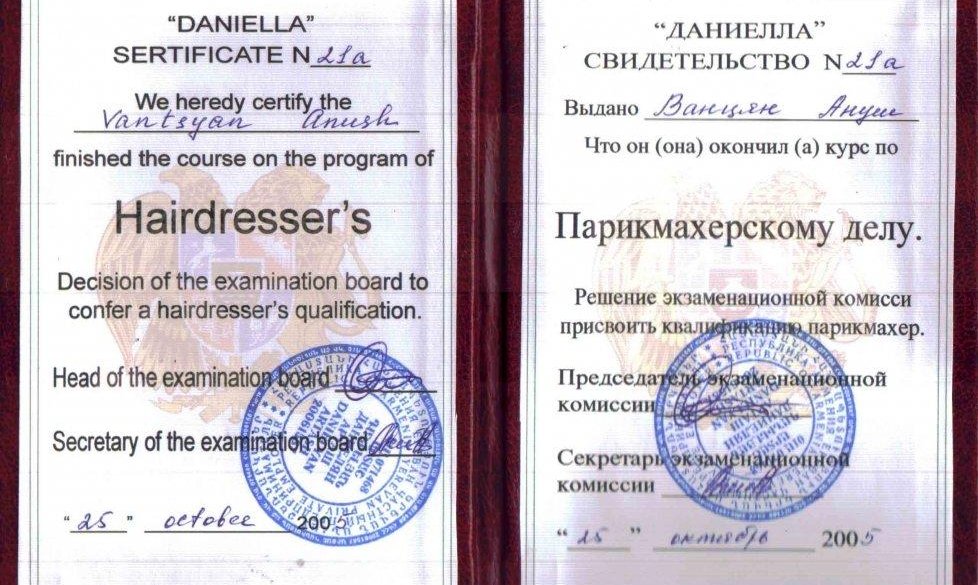 “DANIELLA”
SERTIFICATE N 21a
We heredy certify the
Vantsyan Anush
finished the course on the program of
Hairdresser’s
Decision of the examination board to
confer a hairdresser’s qualification.
Head of the examination board
Secretary of the examination board
“ 25 ” octobec 2005
“ДАНИЕЛЛА”
СВИДЕТЕЛЬСТВО N 21a
Выдано Ванцян Ануш
Что он (она) окончил (а) курс по
Парикмахерскому делу.
Решение экзаменационной комисси
присвоить квалификацию парикмахер.
Председатель экзаменационной
комиссии
Секретарь экзаменационной
комиссии
“ 25 ” октябрь 2005